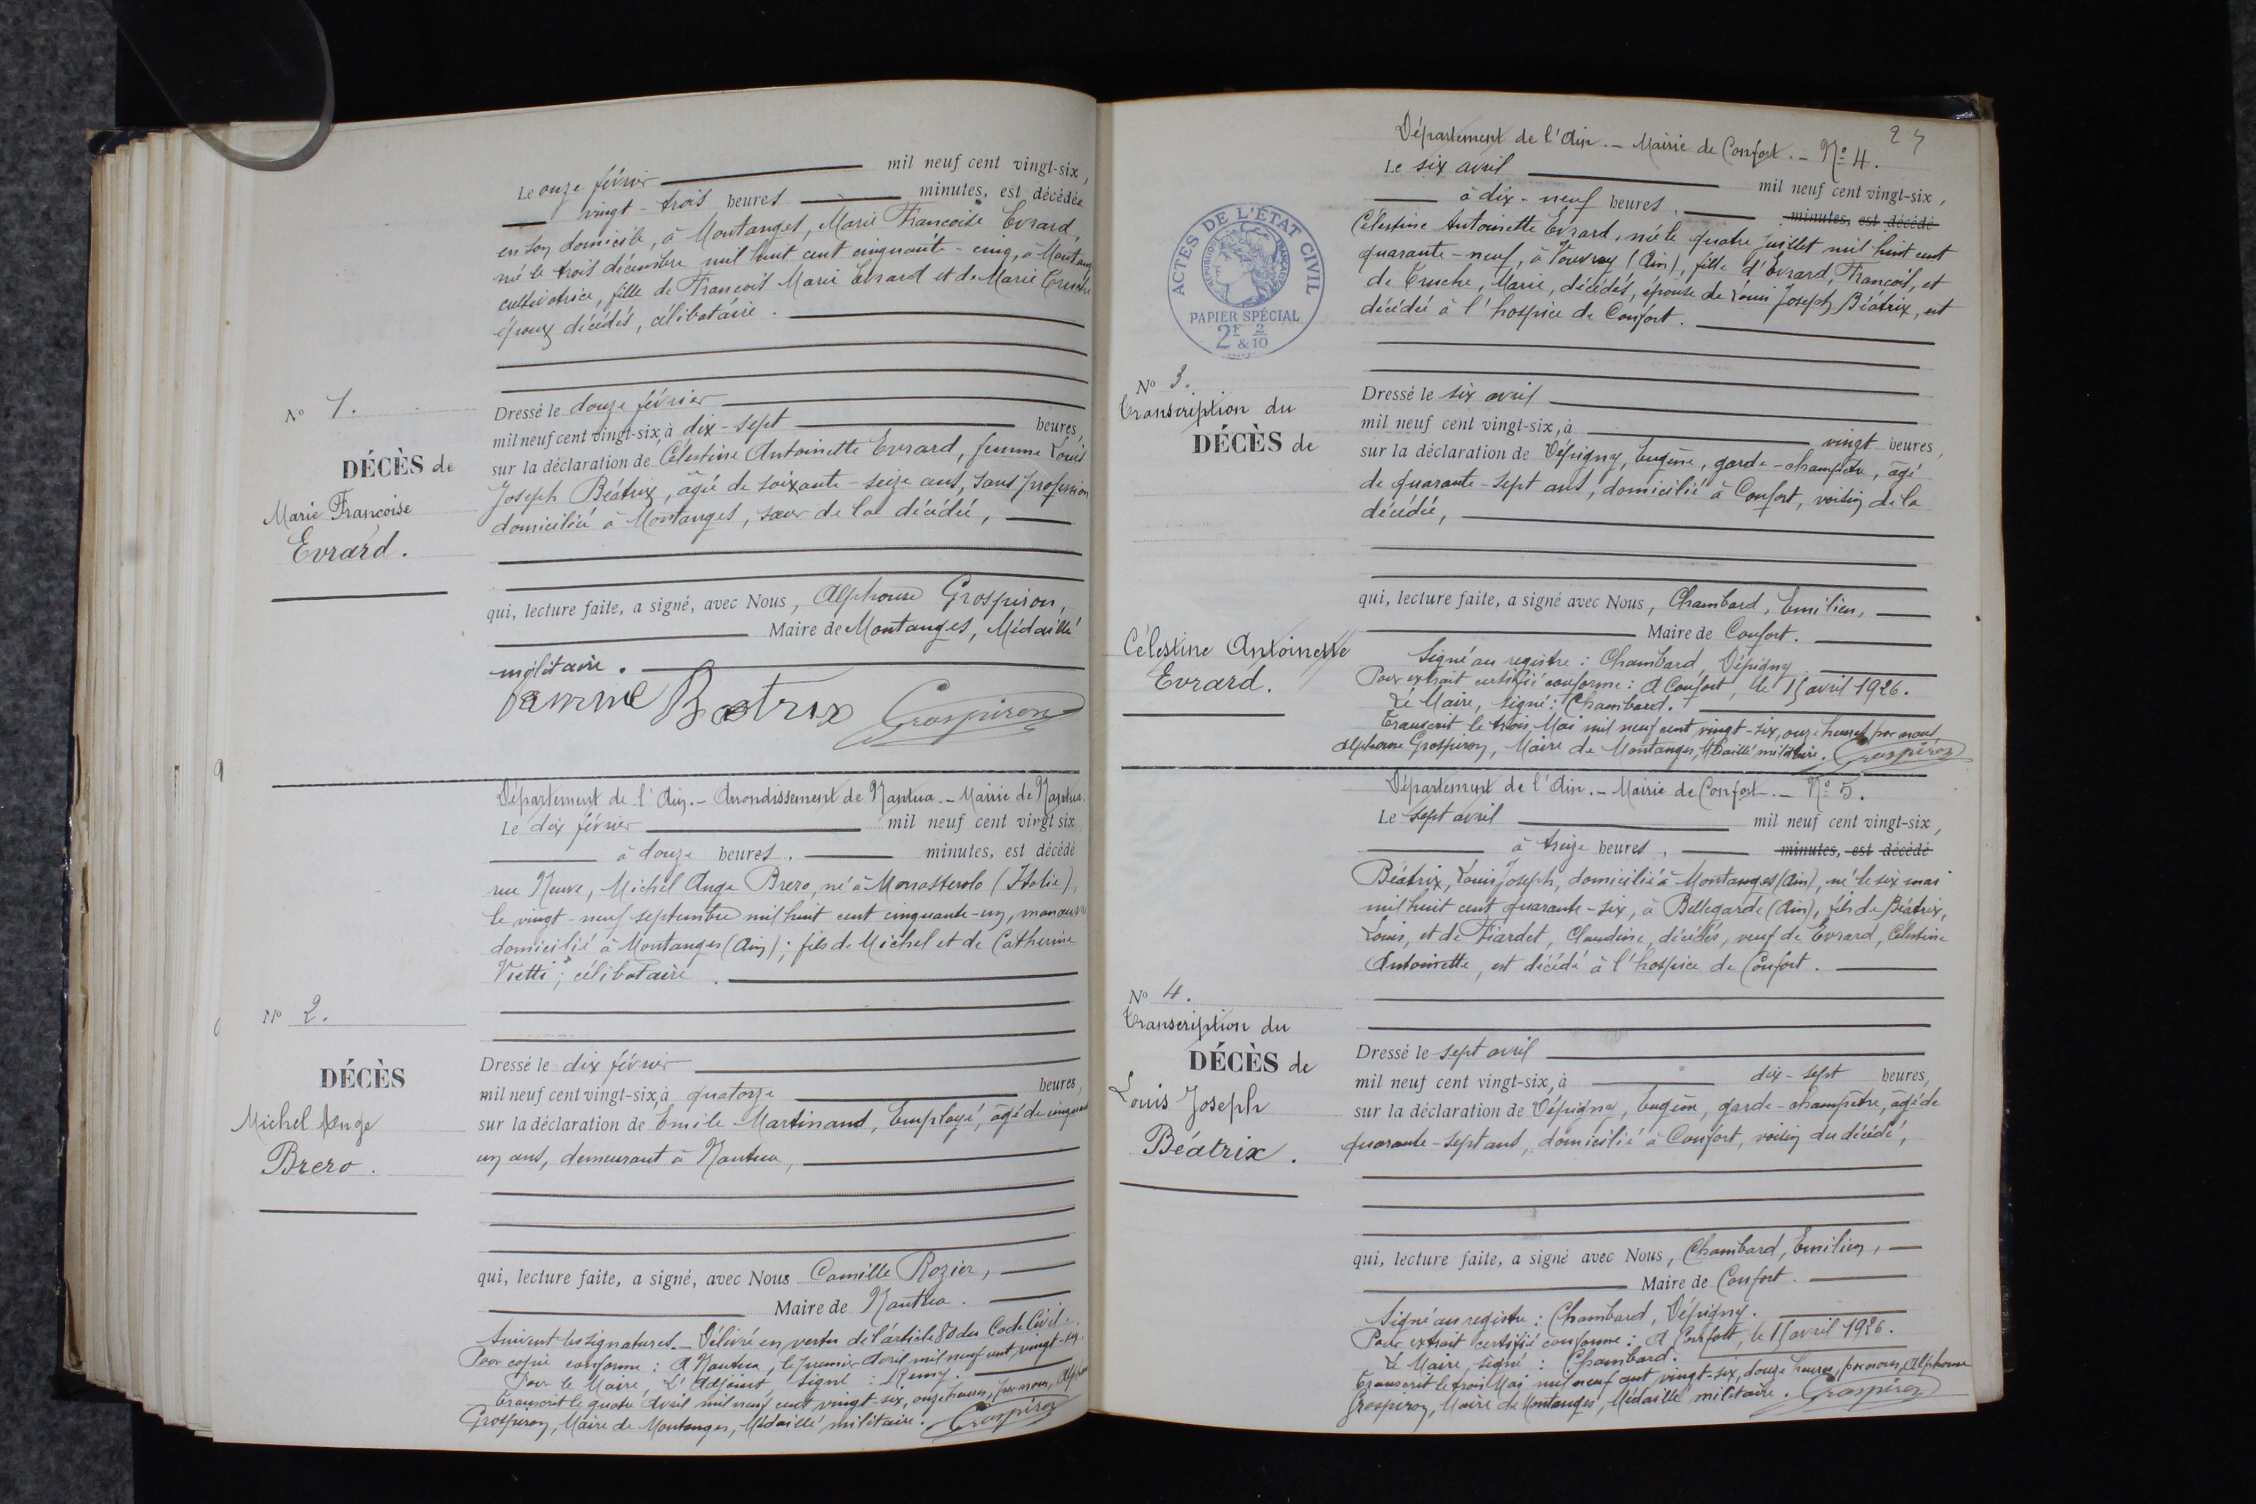 Le onze février mil neuf cent vingt-six,
vingt-trois heures minutes, est décédée
en son domicile, à Montanges, Marie Françoise Evrard,
né le trois décembre mil huit cent cinquante-cinq, à Montanges
cultivatrice, fille de François Marie Evrard et de Marie Truche
époux décédés, célibataire.
No 1.
DÉCÈS de
Marie Françoise
Evrard.
Dressé le douze février
mil neuf cent vingt-six, à dix-sept heures,
sur la déclaration de Célestine Antoinette Evrard, femme Louis
Joseph Béatrix, âgée de soixante-seize ans, sans profession
domiciliée à Montanges, sœur de la décédée,
qui, lecture faite, a signé, avec Nous, Alphonse Grospiron,
Maire de Montanges, Médaillé
militaire.
femme Beatrix Grospiron
Département de l'Ain. - Arrondissement de Nantua. - Mairie de Nantua.
Le dix février mil neuf cent vingt six
à douze heures. minutes, est décédé
rue Neuve, Michel Ange Brero, né à Monasterolo (Italie),
le vingt-neuf septembre mil huit cent cinquante-un, manœuvre
domicilié à Montanges (Ain); fils de Michel et de Catherine
Vietti; célibataire.
No 2.
DÉCÈS
Michel Ange
Brero.
Dressé le dix février
mil neuf cent vingt-six, à quatorze heures,
sur la déclaration de Emile Martinand, Employé, âgé de cinquante
un ans, demeurant à Nantua,
qui, lecture faite, a signé, avec Nous Camille Rozier,
Maire de Nantua.
Suivent les signatures. - Délivré en vertu de l'article 80 du Code Civil.
Pour copie conforme: A Nantua, le premier Avril mil neuf cent vingt-six.
Pour le Maire, L'Adjoint signé: Remy.
Transcrit le quatre Avril mil neuf cent vingt-six, onze heures, par nous, Alphonse
Grospiron, Maire de Montanges, Médaillé militaire. Grospiron
Département de l'Ain. - Mairie de Confort. - No 4.
Le six avril mil neuf cent vingt-six,
à dix-neuf heures, minutes, est décédé
Célestine Antoinette Evrard, née le quatre juillet mil huit cent
quarante-neuf, à Vouvray (Ain), fille d'Evrard, François, et
de Truche, Marie, décédés, épouse de Louis Joseph Béatrix, est
décédée à l'hospice de Confort.
ACTES DE L'ÉTAT CIVIL
RÉPUBLIQUE FRANÇAISE
PAPIER SPÉCIAL
2F & 2/10
No 3.
Transcription du
DÉCÈS de
Célestine Antoinette
Evrard.
Dressé le six avril
mil neuf cent vingt-six, à vingt heures,
sur la déclaration de Dépigny, Eugène, garde-champêtre, âgé
de quarante-sept ans, domicilié à Confort, voisin de la
décédée,
qui, lecture faite, a signé avec Nous, Chambard, Emilien,
Maire de Confort.
Signé au registre: Chambard, Dépigny
Pour extrait certifié conforme: A Confort, le 15 avril 1926.
Le Maire, signé: Chambard.
Transcrit le trois Mai mil neuf cent vingt-six, onze heures par nous,
Alphonse Grospiron, Maire de Montanges, Médaillé militaire. Grospiron
Département de l'Ain. - Mairie de Confort. - No 5.
Le sept avril mil neuf cent vingt-six,
à treize heures, minutes, est décédé
Béatrix, Louis Joseph, domicilié à Montanges (Ain), né le six mai
mil huit cent quarante-six, à Bellegarde (Ain), fils de Béatrix,
Louis, et de Fiardet, Claudine, décédés, veuf de Evrard, Célestine
Antoinette, est décédé à l'hospice de Confort.
No 4.
Transcription du
DÉCÈS de
Louis Joseph
Béatrix.
Dressé le sept avril
mil neuf cent vingt-six, à dix-sept heures,
sur la déclaration de Dépigny, Eugène, garde-champêtre, âgé de
quarante-sept ans, domicilié à Confort, voisin du décédé,
qui, lecture faite, a signé avec Nous, Chambard, Emilien,
Maire de Confort.
Signé au registre: Chambard, Dépigny.
Pour extrait certifié conforme: A Confort, le 15 avril 1926.
Le Maire, signé: Chambard.
Transcrit le trois Mai mil neuf cent vingt-six, douze heures, par nous, Alphonse
Grospiron, Maire de Montanges, Médaillé militaire. Grospiron